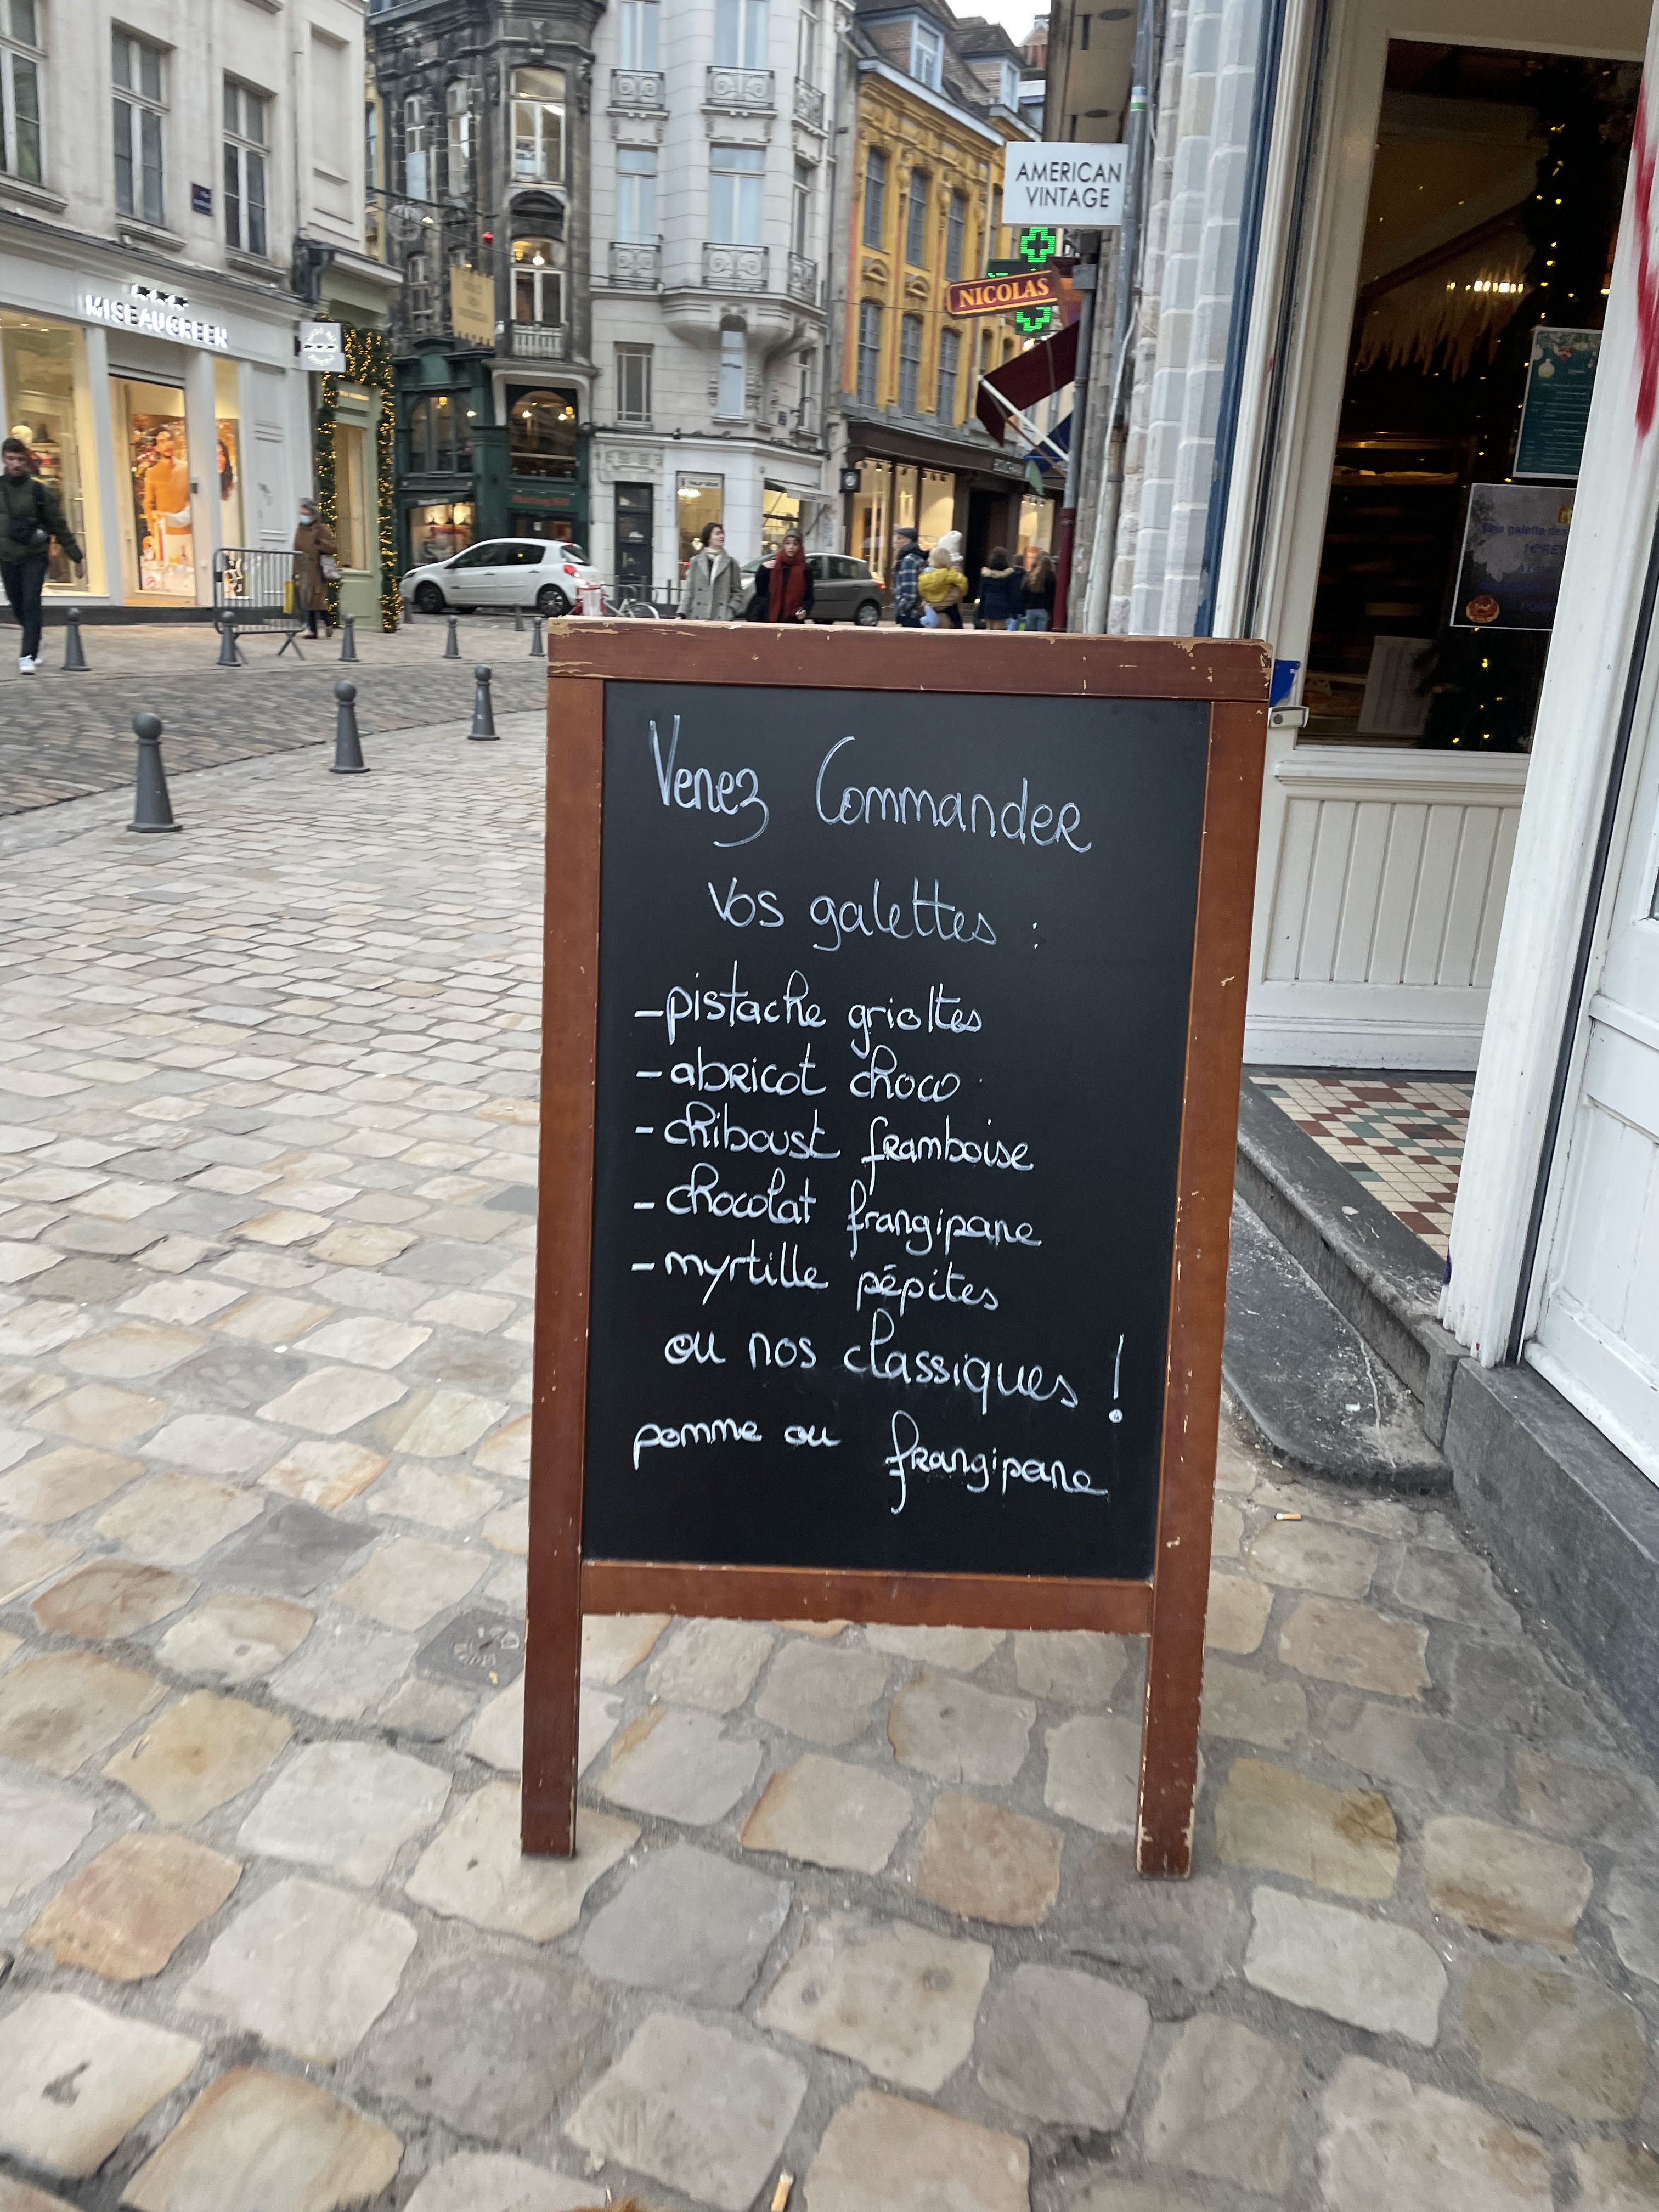 MISEAUGREEN
AMERICAN
VINTAGE
NICOLAS
Venez Commander
vos galettes :
- pistache griottes
- abricot choco
- chiboust framboise
- chocolat frangipane
- myrtille pépites
ou nos classiques !
pomme ou frangipane